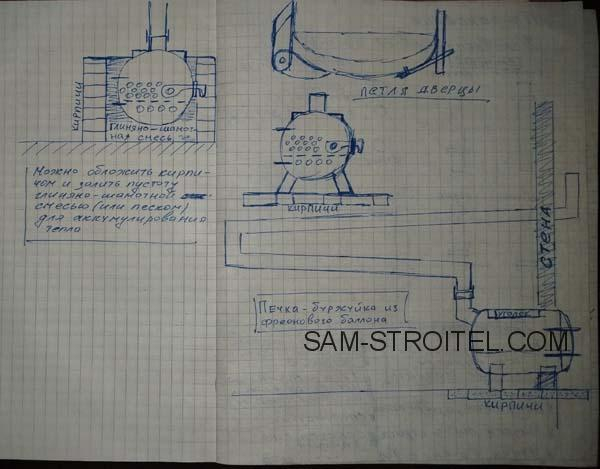 КИРПИЧИ
ГЛИНЯНО-ШАМОТ-
НАЯ СМЕСЬ
МОЖНО ОБЛОЖИТЬ КИРПИ-
ЧОМ И ЗАЛИТЬ ПУСТОТУ
ГЛИНЯНО-ШАМОТНОЙ
СМЕСЬЮ (ИЛИ ПЕСКОМ)
ДЛЯ АККУМУЛИРОВАНИЯ
ТЕПЛА
ПЕТЛЯ ДВЕРЦЫ
КИРПИЧИ
СТЕНА
ПЕЧКА-БУРЖУЙКА ИЗ
ФРЕОНОВОГО БАЛЛОНА
УГОЛОК
SAM-STROITEL.COM
КИРПИЧИ